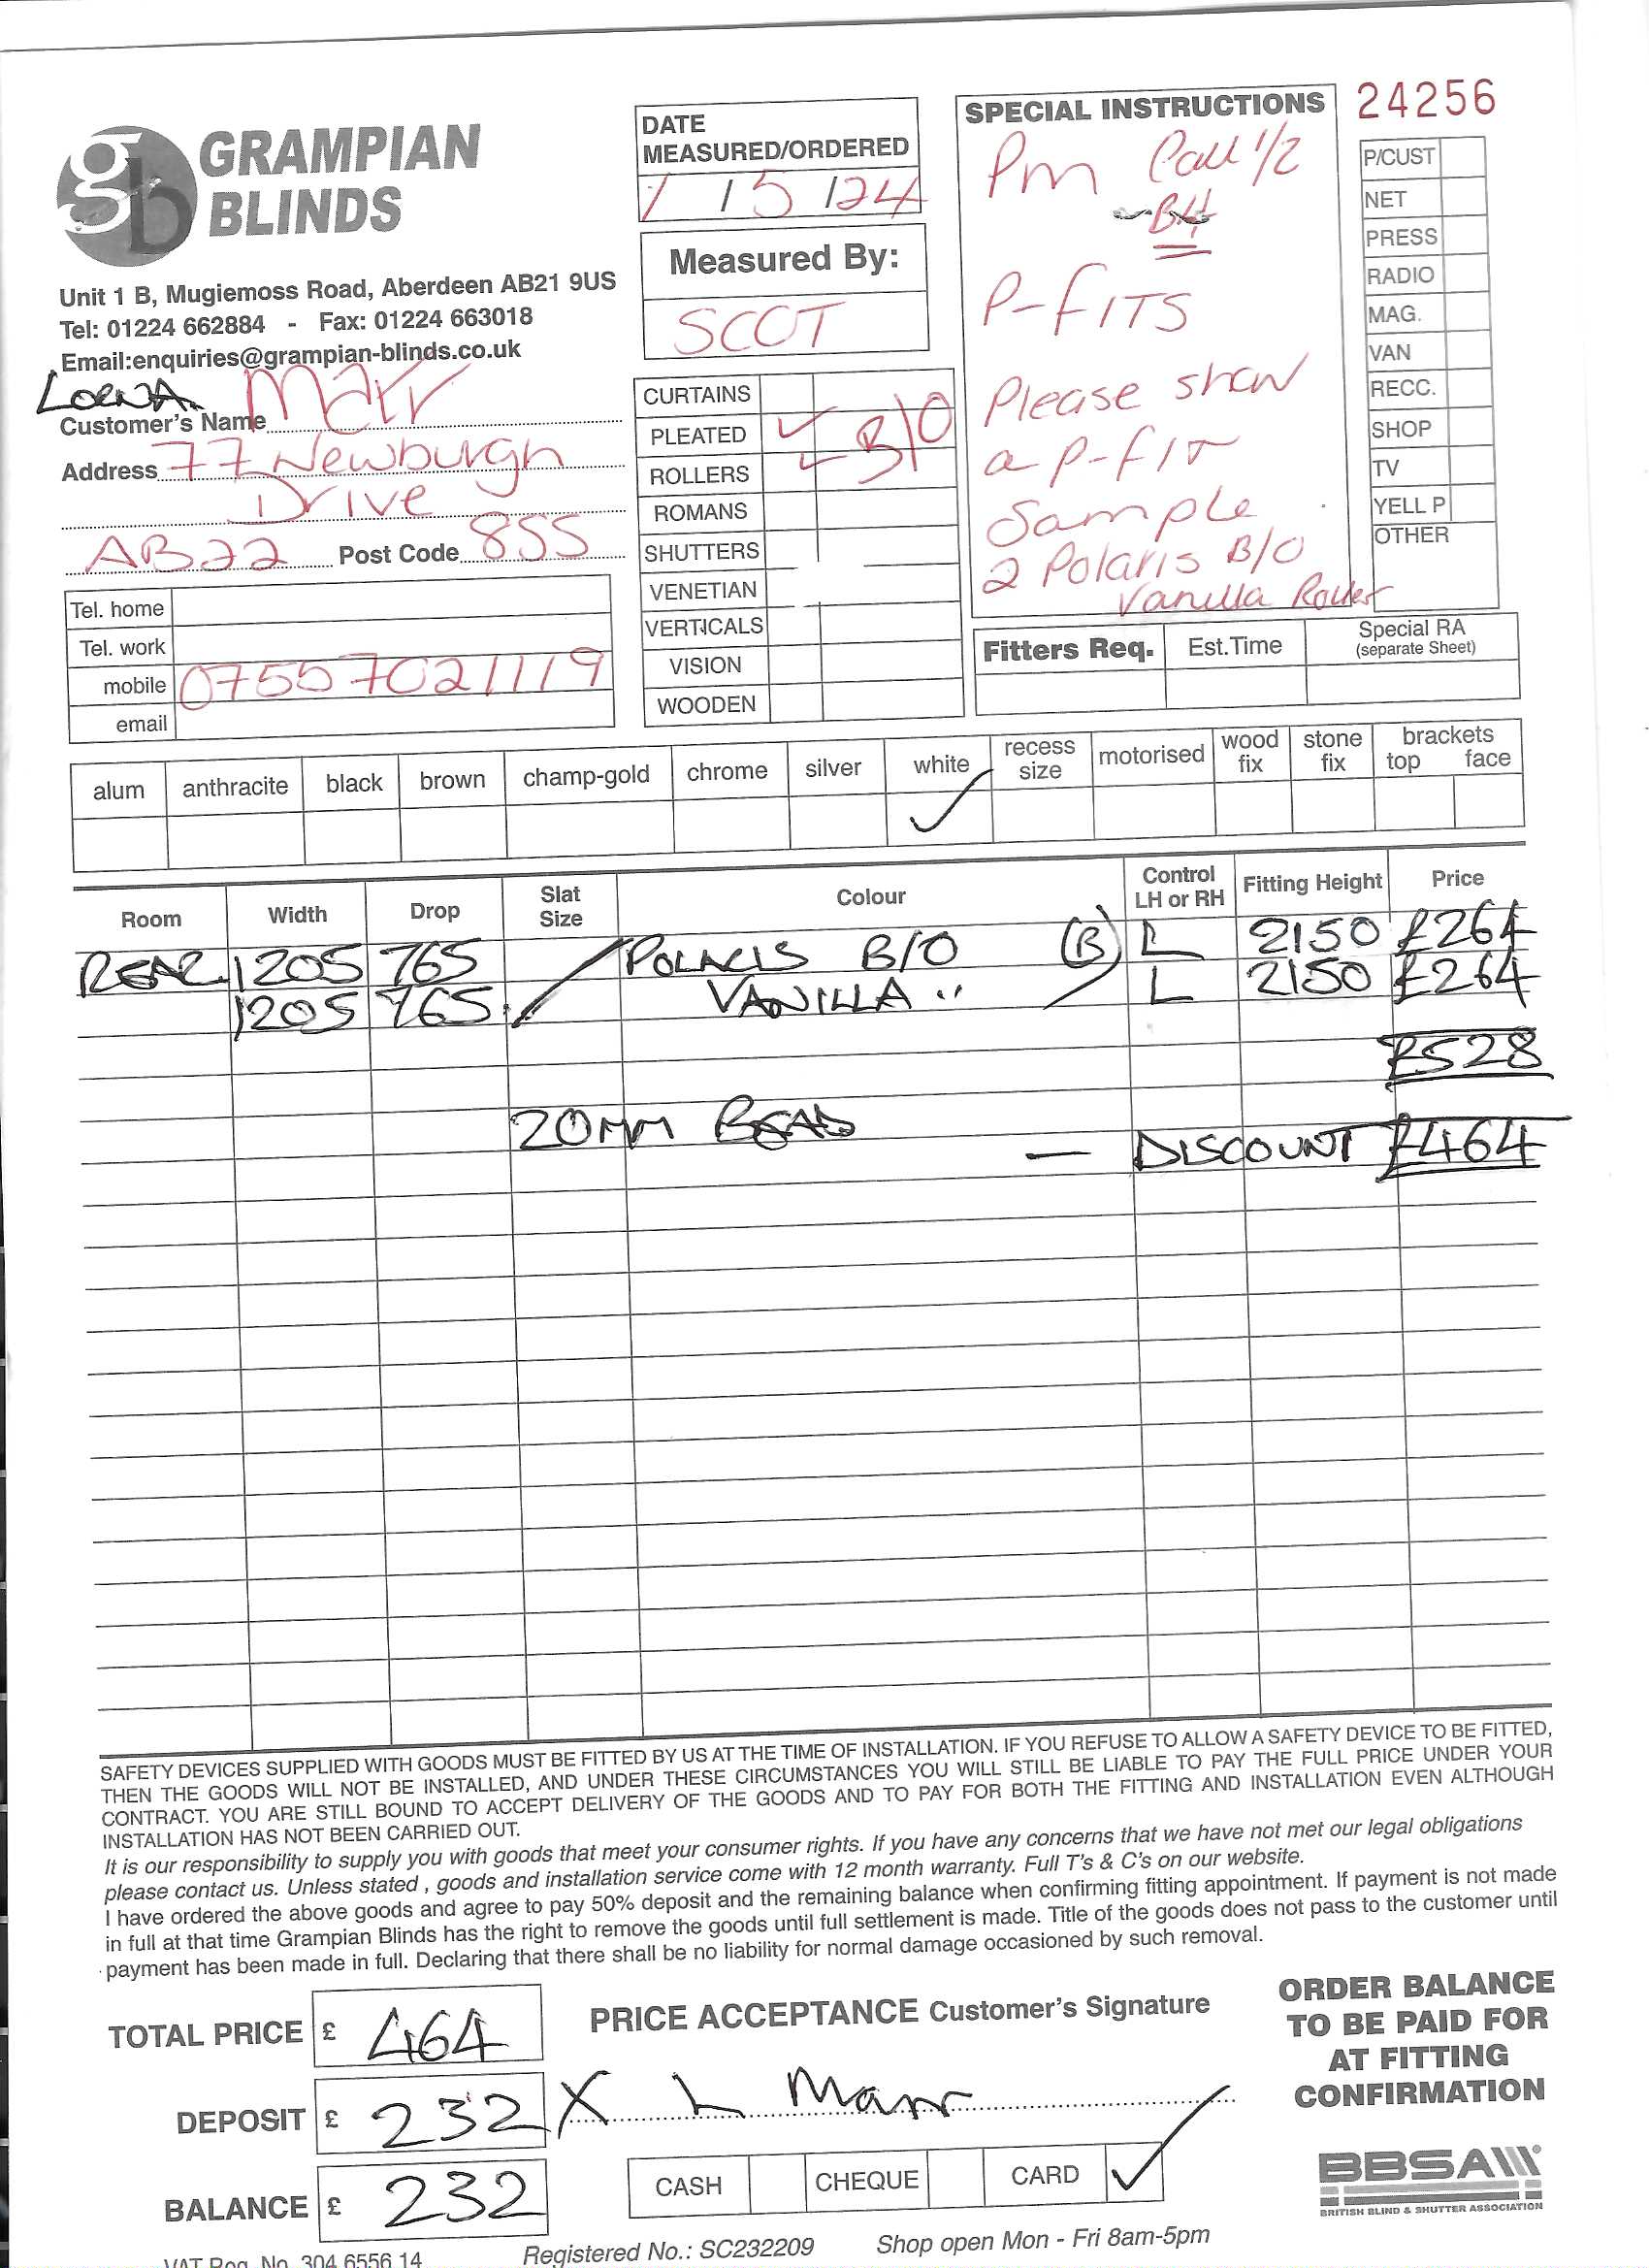 24256
GRAMPIAN
BLINDS
Unit 1 B, Mugiemoss Road, Aberdeen AB21 9US
Tel: 01224 662884 - Fax: 01224 663018
Email:enquiries@grampian-blinds.co.uk
LORNA Marr
Customer's Name
Address 77 Newburgh
Drive
AB22 Post Code 8SS
Tel. home
Tel. work
mobile 07557021119
email
DATE
MEASURED/ORDERED
1 / 5 / 24
Measured By:
SCOT
CURTAINS
PLEATED ✓
ROLLERS ✓ B/O
ROMANS
SHUTTERS
VENETIAN
VERTICALS
VISION
WOODEN
SPECIAL INSTRUCTIONS
Pm Call 1/2
B4
P-FITS
Please show
a P-FIT
Sample
2 Polaris B/O
Vanilla Roller
P/CUST
NET
PRESS
RADIO
MAG.
VAN
RECC.
SHOP
TV
YELL P
OTHER
Fitters Req. Est.Time Special RA
(separate Sheet)
alum anthracite black brown champ-gold chrome silver white ✓ recess size motorised wood fix stone fix brackets top face
Room Width Drop Slat Size Colour Control LH or RH Fitting Height Price
REAR 1205 765 POLARIS B/O (B) L 2150 £264
1205 765 VANILLA " L 2150 £264
£528
20MM BEAD
— DISCOUNT £464
SAFETY DEVICES SUPPLIED WITH GOODS MUST BE FITTED BY US AT THE TIME OF INSTALLATION. IF YOU REFUSE TO ALLOW A SAFETY DEVICE TO BE FITTED,
THEN THE GOODS WILL NOT BE INSTALLED, AND UNDER THESE CIRCUMSTANCES YOU WILL STILL BE LIABLE TO PAY THE FULL PRICE UNDER YOUR
CONTRACT. YOU ARE STILL BOUND TO ACCEPT DELIVERY OF THE GOODS AND TO PAY FOR BOTH THE FITTING AND INSTALLATION EVEN ALTHOUGH
INSTALLATION HAS NOT BEEN CARRIED OUT.
It is our responsibility to supply you with goods that meet your consumer rights. If you have any concerns that we have not met our legal obligations
please contact us. Unless stated , goods and installation service come with 12 month warranty. Full T's & C's on our website.
I have ordered the above goods and agree to pay 50% deposit and the remaining balance when confirming fitting appointment. If payment is not made
in full at that time Grampian Blinds has the right to remove the goods until full settlement is made. Title of the goods does not pass to the customer until
payment has been made in full. Declaring that there shall be no liability for normal damage occasioned by such removal.
TOTAL PRICE £ 464
DEPOSIT £ 232
BALANCE £ 232
PRICE ACCEPTANCE Customer's Signature
X L Marr
CASH CHEQUE CARD ✓
ORDER BALANCE
TO BE PAID FOR
AT FITTING
CONFIRMATION
BBSA
BRITISH BLIND & SHUTTER ASSOCIATION
VAT Reg. No. 304 6556 14
Registered No.: SC232209
Shop open Mon - Fri 8am-5pm